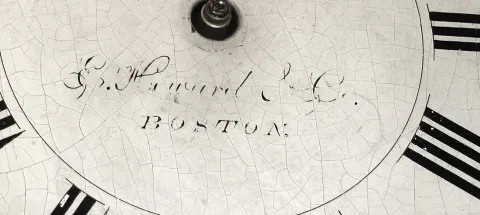 E. Howard & Co.
BOSTON.